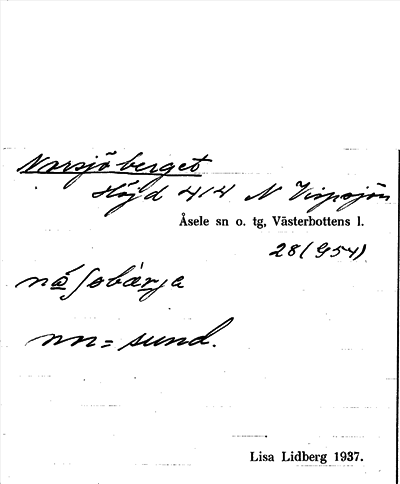 Norsjöberget
Höjd 414 N Vispsjön
Åsele sn o. tg, Västerbottens l.
28 (G54)
nå ʃobärja
nn = sund.
Lisa Lidberg 1937.